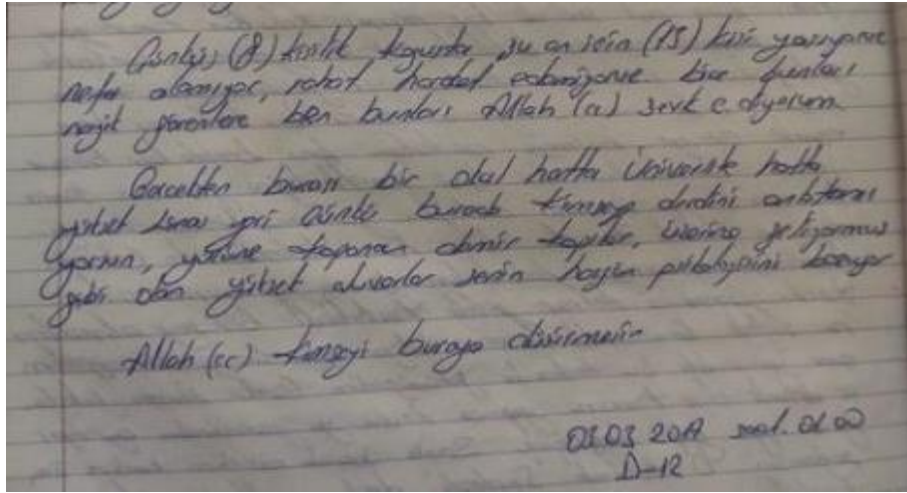 Çünkü (8) kişilik koğuşta şu an için (25) kişi yaşıyoruz
nefes alamıyor, rahat hareket edemiyoruz bize bunları
görenlere ben bunları Allah (cc) sevk ediyorum
Gerçekten burası bir okul hatta üniversite hatta
yüksek lisans yeri Çünkü burada kimseye derdini anlatamı
yorsun, yüzüne kapanan demir kapılar, üzerine geliyormuş
gibi olan yüksek duvarlar senin hayatın psikolojisini bozuyor
Allah (cc) kimseyi buraya düşürmesin
03.03 2019 saat. 01.00
D-12